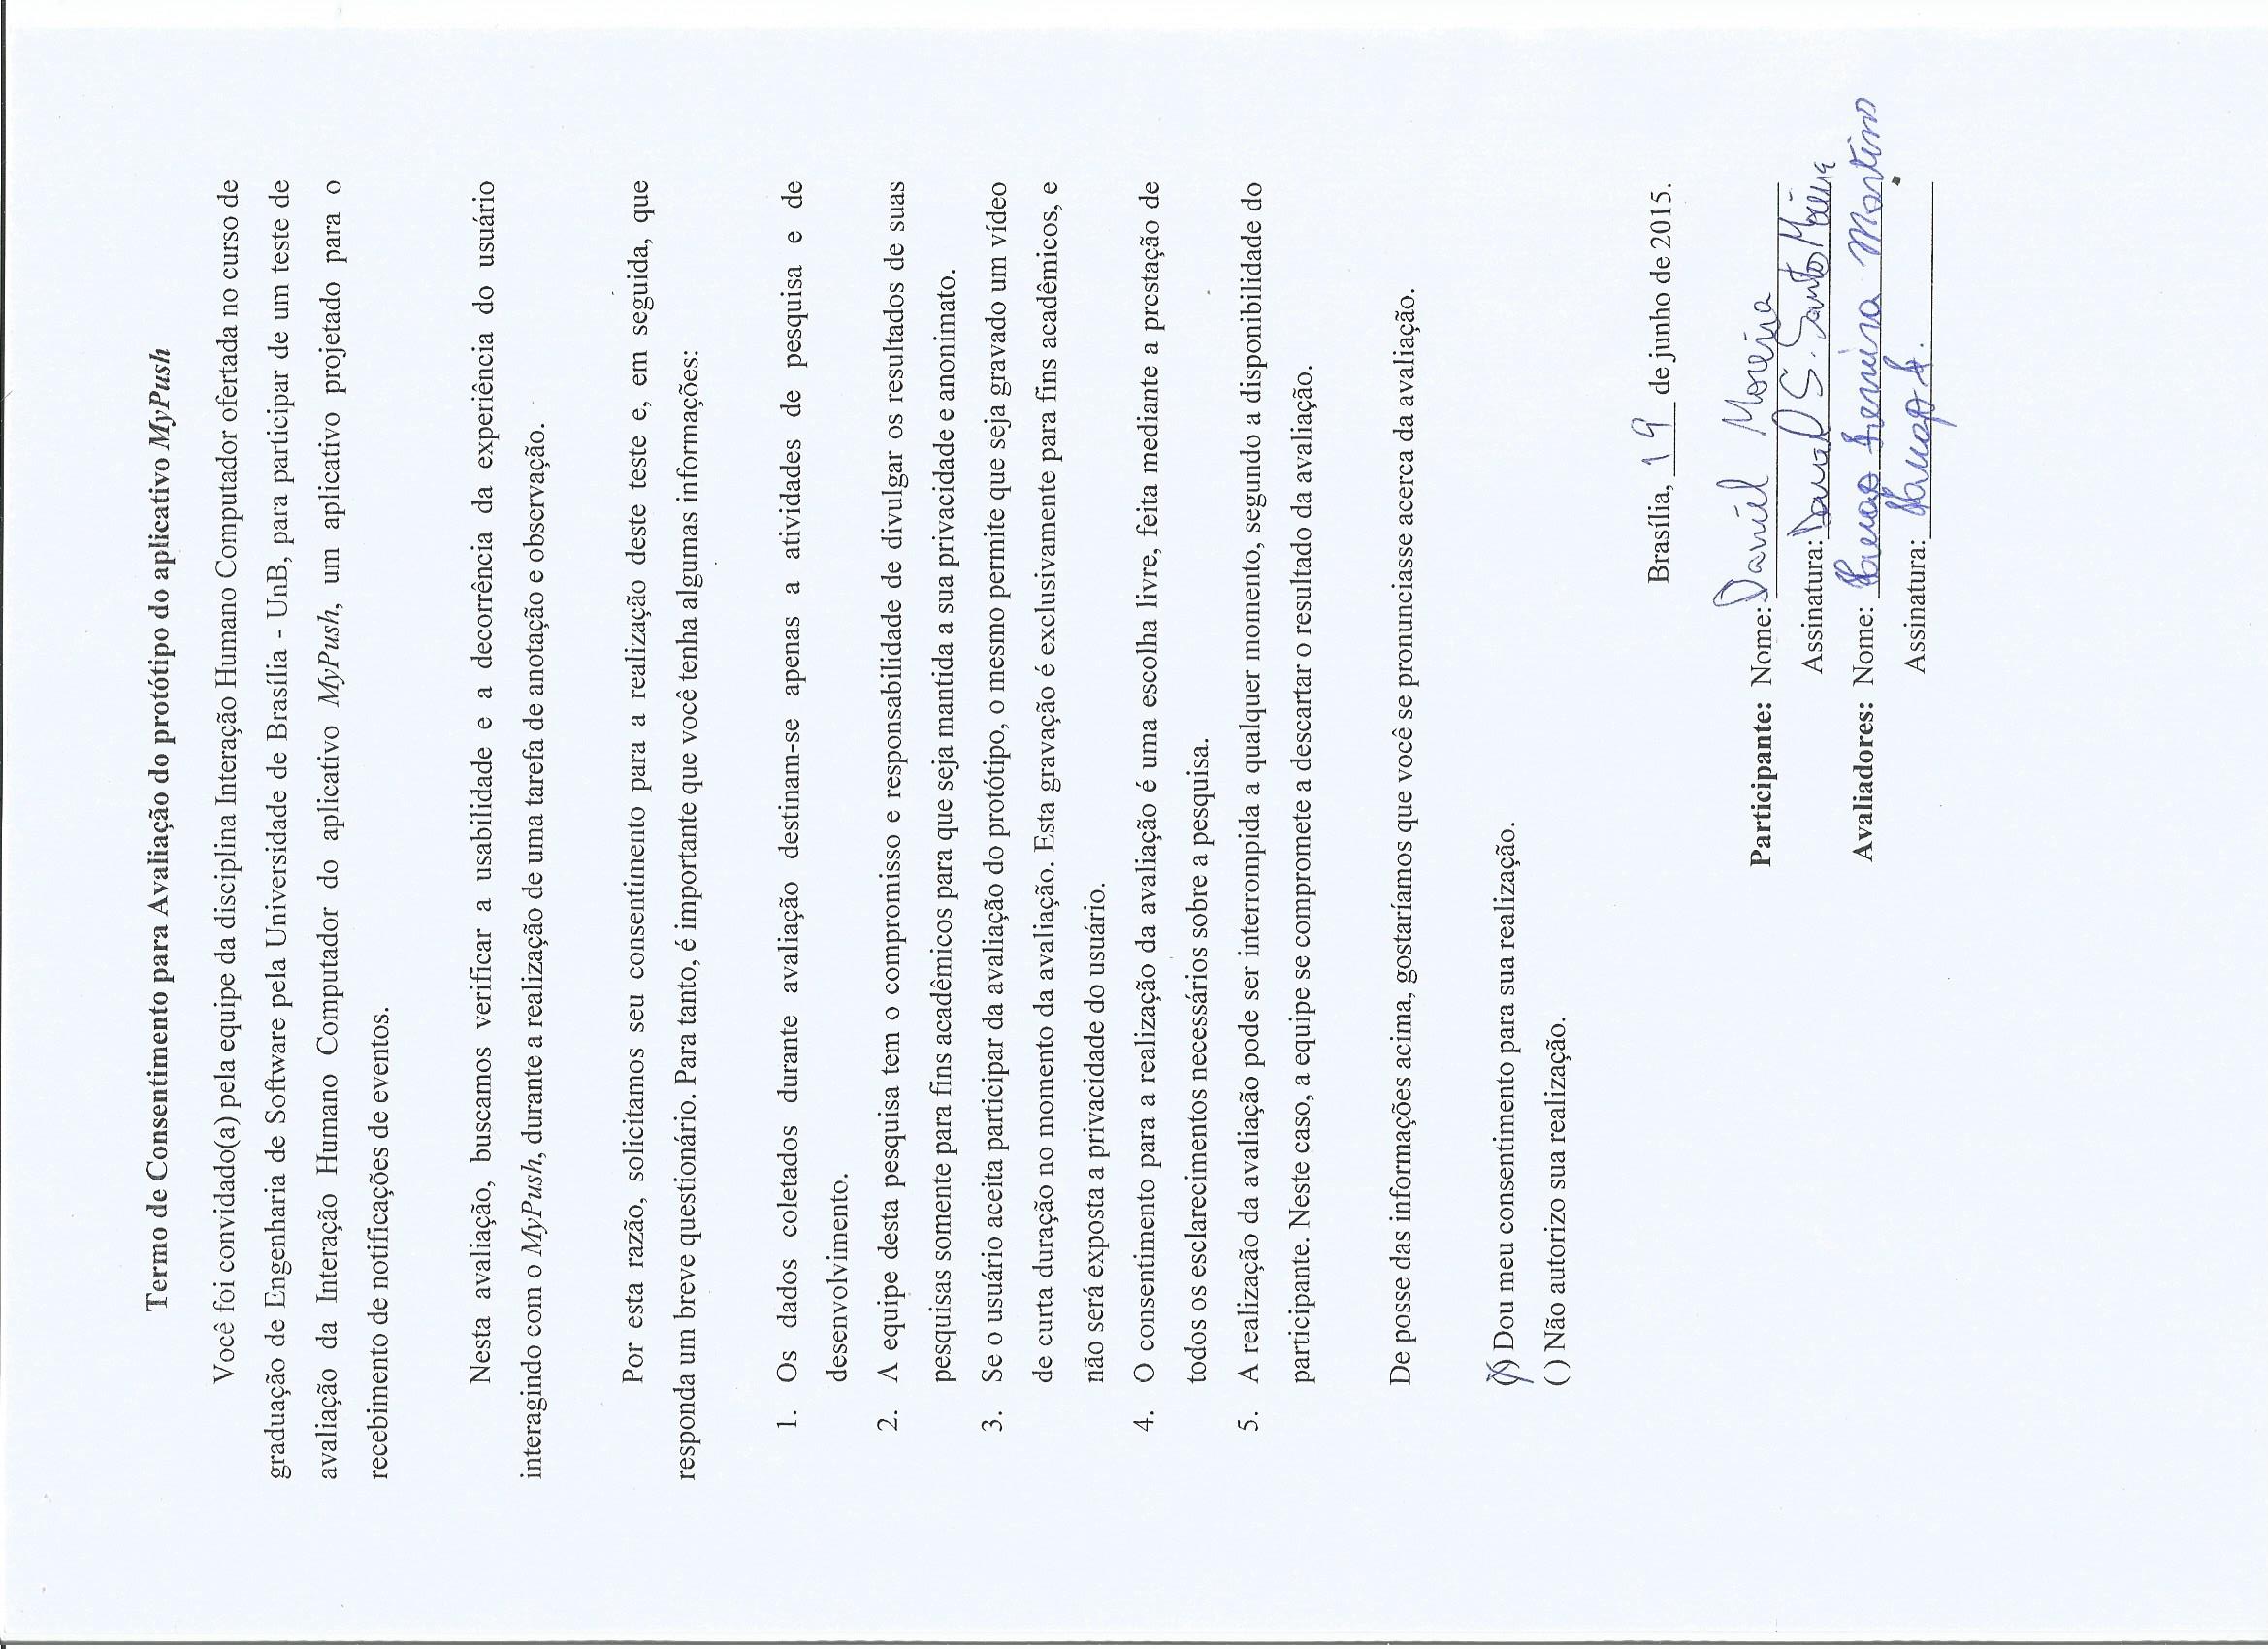 Termo de Consentimento para Avaliação do protótipo do aplicativo MyPush
Você foi convidado(a) pela equipe da disciplina Interação Humano Computador ofertada no curso de
graduação de Engenharia de Software pela Universidade de Brasília - UnB, para participar de um teste de
avaliação da Interação Humano Computador do aplicativo MyPush, um aplicativo projetado para o
recebimento de notificações de eventos.
Nesta avaliação, buscamos verificar a usabilidade e a decorrência da experiência do usuário
interagindo com o MyPush, durante a realização de uma tarefa de anotação e observação.
Por esta razão, solicitamos seu consentimento para a realização deste teste e, em seguida, que
responda um breve questionário. Para tanto, é importante que você tenha algumas informações:
1. Os dados coletados durante avaliação destinam-se apenas a atividades de pesquisa e de
desenvolvimento.
2. A equipe desta pesquisa tem o compromisso e responsabilidade de divulgar os resultados de suas
pesquisas somente para fins acadêmicos para que seja mantida a sua privacidade e anonimato.
3. Se o usuário aceita participar da avaliação do protótipo, o mesmo permite que seja gravado um vídeo
de curta duração no momento da avaliação. Esta gravação é exclusivamente para fins acadêmicos, e
não será exposta a privacidade do usuário.
4. O consentimento para a realização da avaliação é uma escolha livre, feita mediante a prestação de
todos os esclarecimentos necessários sobre a pesquisa.
5. A realização da avaliação pode ser interrompida a qualquer momento, segundo a disponibilidade do
participante. Neste caso, a equipe se compromete a descartar o resultado da avaliação.
De posse das informações acima, gostaríamos que você se pronunciasse acerca da avaliação.
(X) Dou meu consentimento para sua realização.
( ) Não autorizo sua realização.
Brasília, 19 de junho de 2015.
Participante: Nome: Daniel Moreira
Assinatura: Daniel S. Santos
Avaliadores: Nome: Martins
Assinatura: